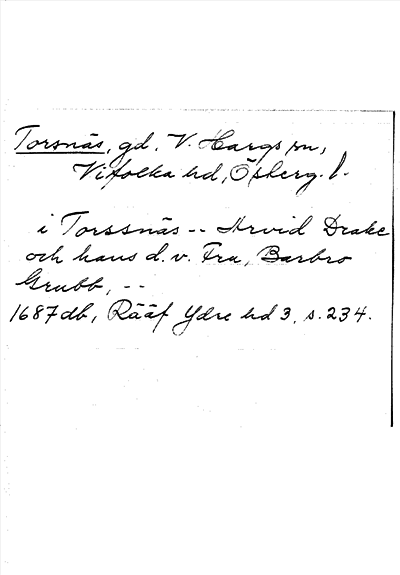 Torsnäs, gd, V. Hargs sn,
Vifolka hd, Österg. l.
i Torssnäs -- Arvid Drake
och hans d. v. Fru, Barbro
Grubb, --
1687 db, Rääf Ydre hd 3, s. 234.